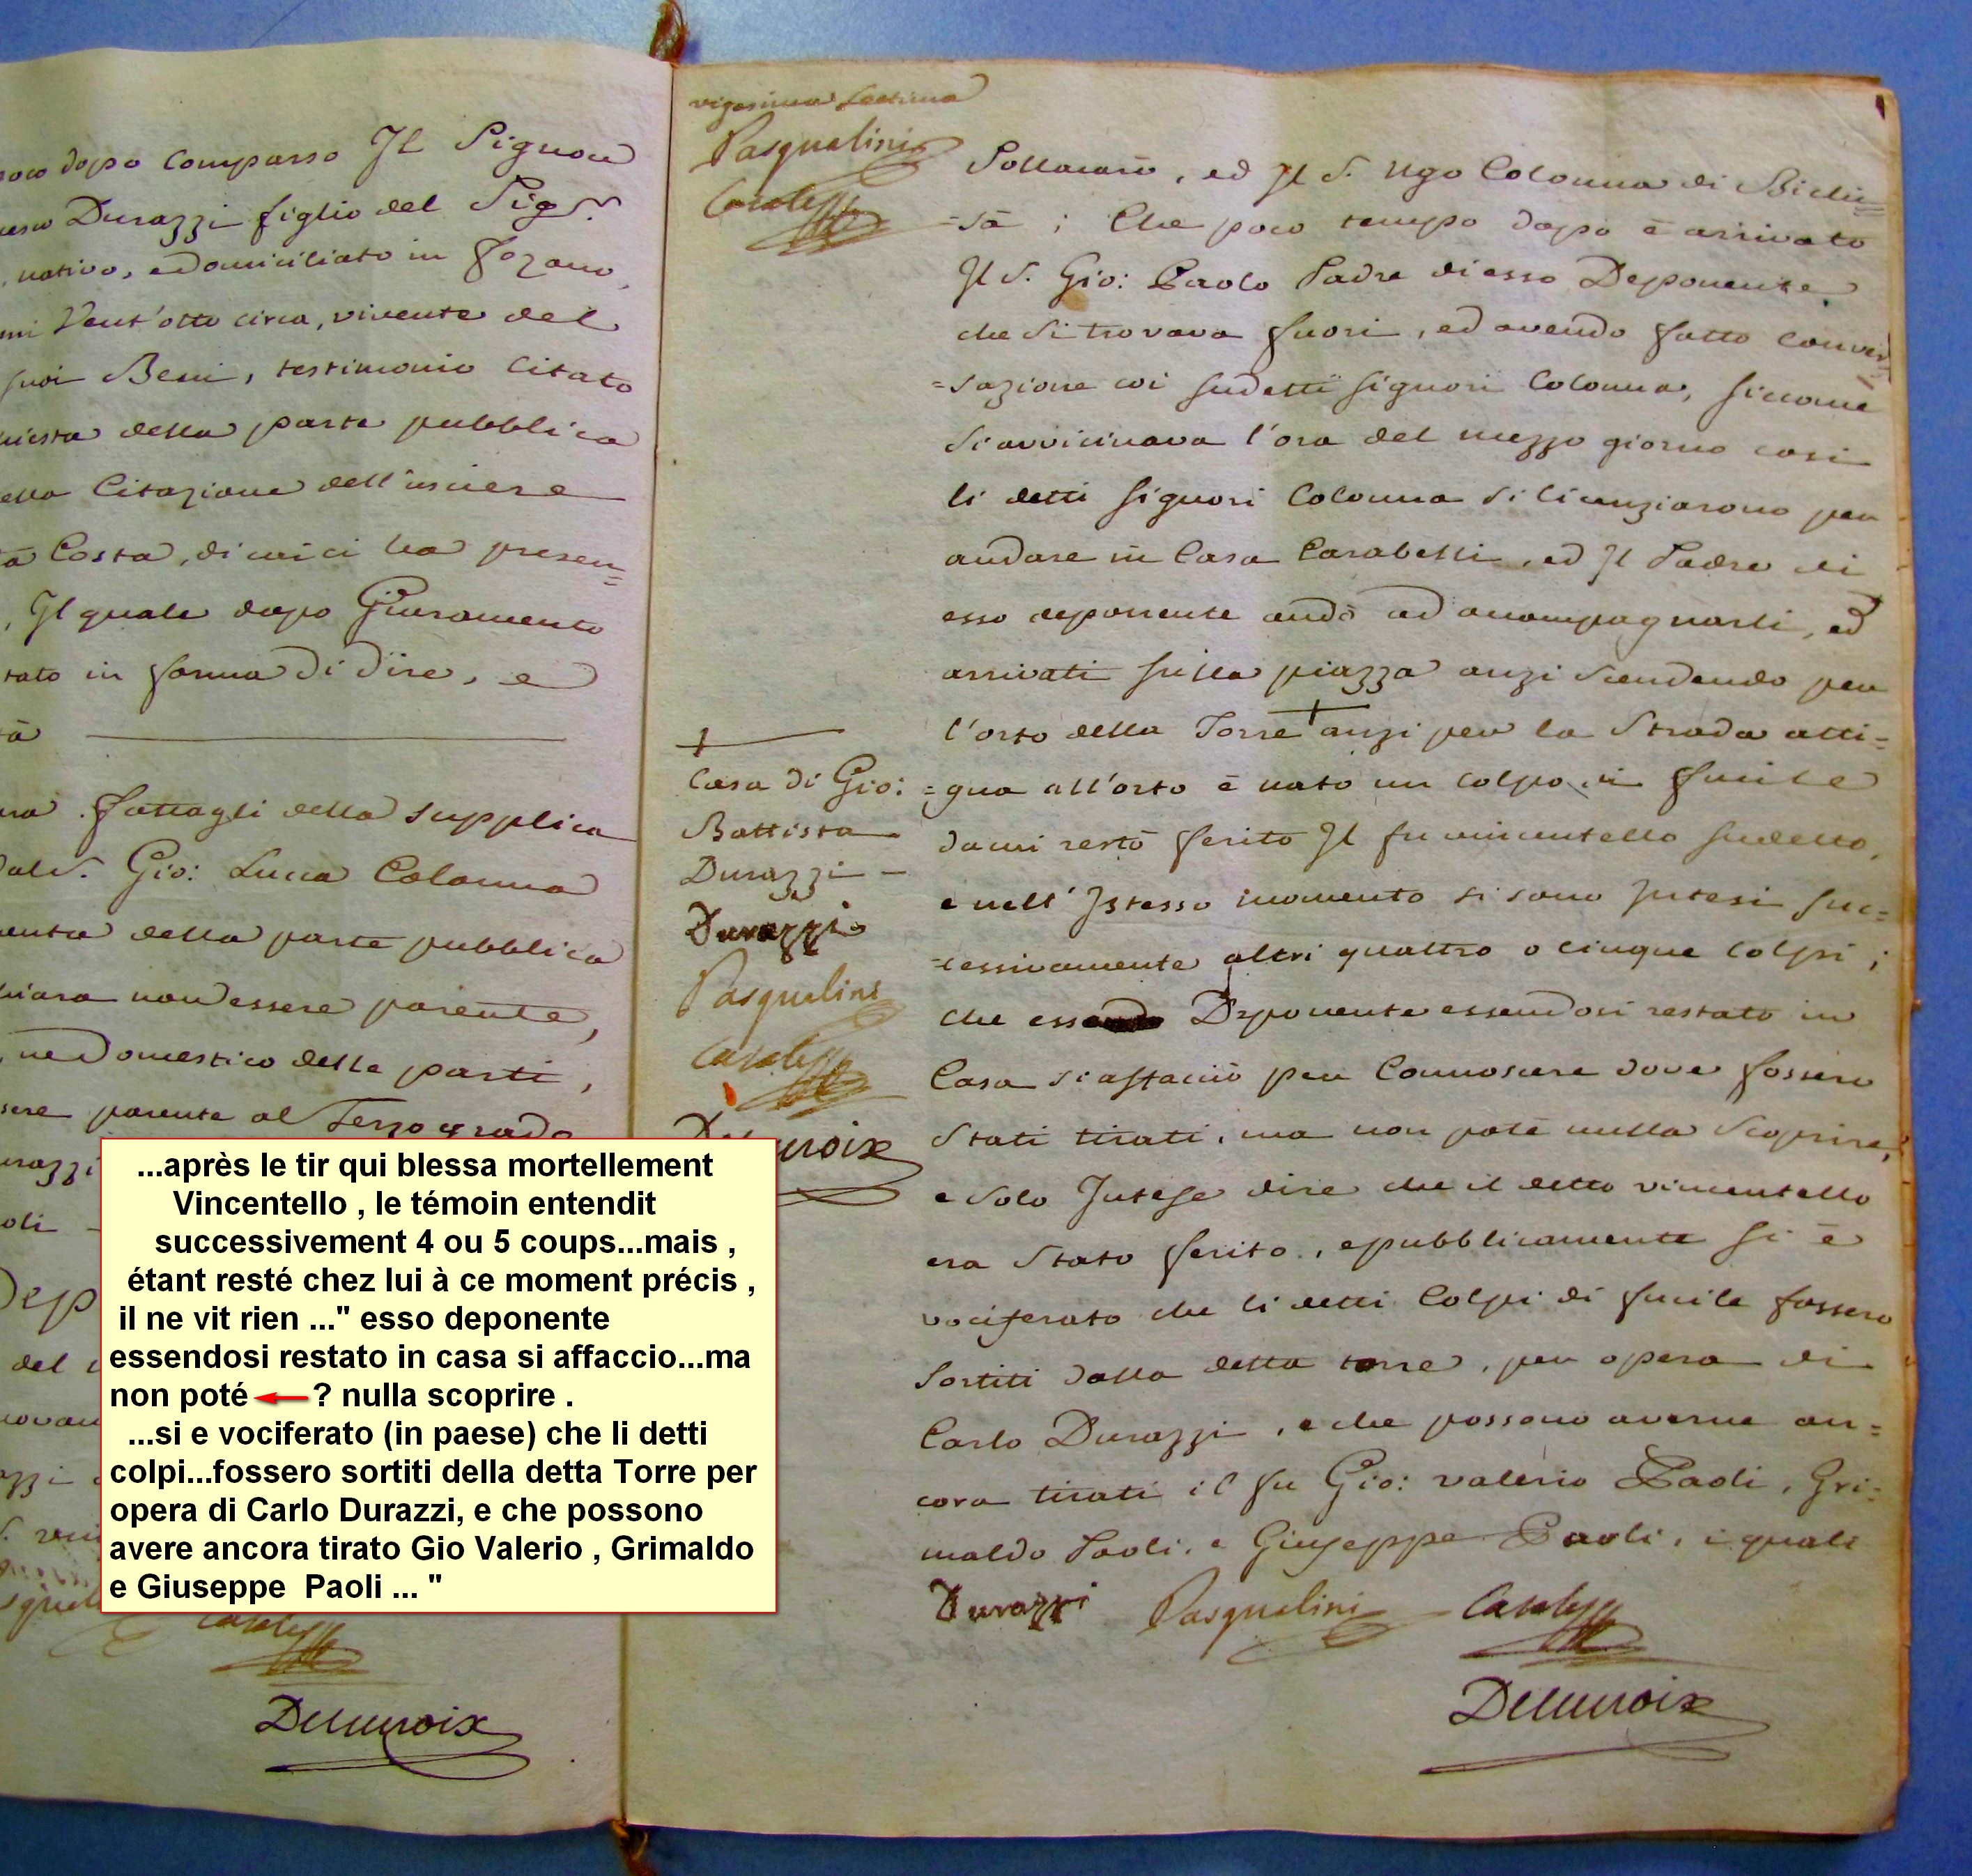 poco dopo comparso Jl Signor
Durazzi figlio del Sig.r
nativo, e domiciliato in Fozano,
Vent'otto circa, vivente del
suoi Beni, testimonio Citato
della parte pubblica
Citazione dell'usciere
Costa, di cui ci ha presen=
, Jl quale dopo Giuramento
in forma di dire, e
fattagli della supplica
dal S. Gio: Luca Colonna
della parte pubblica
non essere parente,
ne Domestico delle parti,
parente al Terzo grado
Dep
del
Casale
Delacroix
vigesima settima
Pasqualini
Casale
Sollacarò, ed Jl S. Ugo Colonna di Bichi=
=sà ; Che poco tempo dopo è arrivato
Jl S. Gio: Paolo Padre di esso Deponente
che si trovava fuori, ed avendo fatto conver=
=sazione coi sudetti signori Colonna, siccome
si avvicinava l'ora del mezzo giorno così
li detti signori Colonna si licenziarono per
andare in Casa Carabelli, ed Jl Padre di
esso deponente andò ad accompagnarli, ed
arrivati sulla piazza anzi scendendo per
l'orto della Torre + anzi per la Strada atti=
=gua all'orto è nato un colpo di fucile
da cui restò ferito Jl fu vincentello sudetto,
e nell'Jstesso momento si sono Jntesi suc=
=cessivamente altri quattro o cinque colpi ;
che esso Deponente essendosi restato in
Casa si affacciò per Connoscere dove fossero
stati tirati, ma non potè nulla scoprire,
e solo Jntese dire che il detto vincentello
era stato ferito, e pubblicamente si è
vociferato che li detti Colpi di fucile fossero
sortiti dalla detta torre, per opera di
Carlo Durazzi, e che possono averne an=
cora tirati il fu Gio: valerio Paoli, Gri=
maldo Paoli, e Giuseppe Paoli, i quali
+
Casa di Gio:
Battista
Durazzi –
Durazzi
Pasqualini
Casale
Delacroix
Durazzi Pasqualini Casale
Delacroix
...après le tir qui blessa mortellement
Vincentello , le témoin entendit
successivement 4 ou 5 coups...mais ,
étant resté chez lui à ce moment précis ,
il ne vit rien ..." esso deponente
essendosi restato in casa si affaccio...ma
non poté ? nulla scoprire .
...si e vociferato (in paese) che li detti
colpi...fossero sortiti della detta Torre per
opera di Carlo Durazzi, e che possono
avere ancora tirato Gio Valerio , Grimaldo
e Giuseppe Paoli ... "